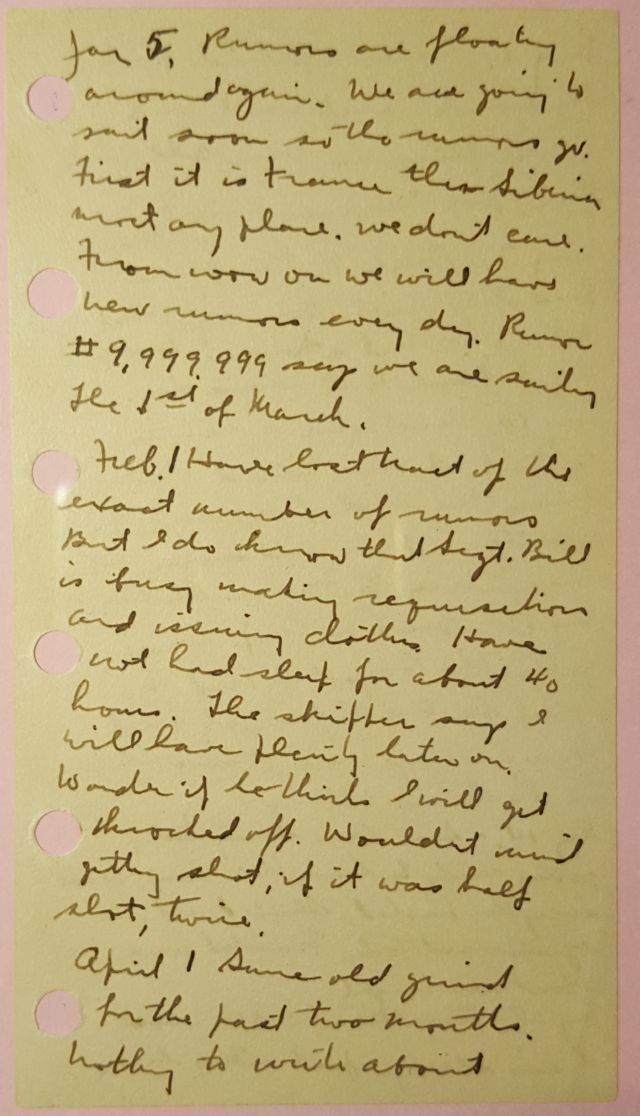 Jan 5. Rumors are floating
around again. We are going to
sail soon so the rumors go.
First it is France then Siberia
most any place. we don't care.
From now on we will have
new rumors every day. Rumor
#9,999,999 says we are sailing
the 1st of March.
Feb. 1 Have lost track of the
exact number of rumors
But I do know that Sergt. Bill
is busy making requisitions
and issuing clothes. Have
not had sleep for about 40
hours. The skipper says I
will have plenty later on.
Wonder if he thinks I will get
knocked off. Wouldn't mind
getting shot, if it was half
shot, twice.
April 1 Same old grind
for the past two months.
Nothing to write about